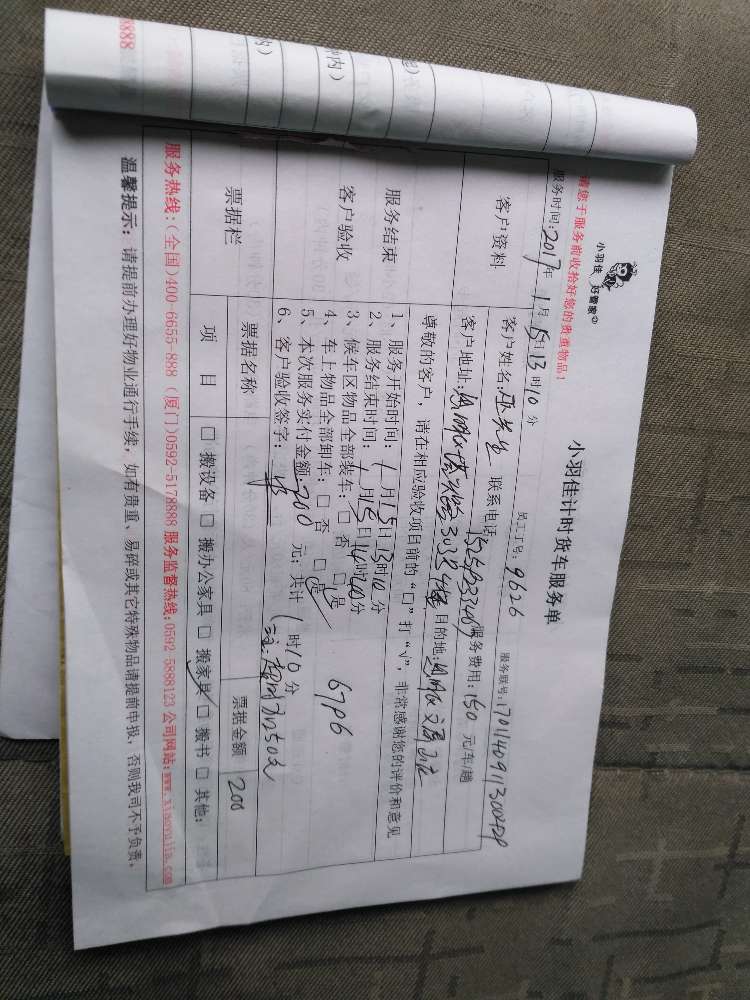 8888
小羽佳 好管家
小羽佳计时货车服务单
请您于服务前收拾好您的贵重物品！
服务时间：2017年1月15日13时10分 员工工号：9626 服务联号：
客户资料
客户姓名： 先生 联系电话 服务费用：150 元/车/趟
客户地址： 目的地：
尊敬的客户，请在相应验收项目前的“□”打“√”，非常感谢您的评价和意见
服务结束
客户验收
1、服务开始时间：1月15日13时10分
2、服务结束时间：1月15日14时20分
3、候车区物品全部装车：□ 否 □ 是
4、车上物品全部卸车：□ 否 □ 是
5、本次服务实付金额：200 元；共计 1时10分
6、客户验收签字：
票据栏
票据名称 票据金额 200
项 目 □ 搬设备 □ 搬办公家具 □ 搬家具 □ 搬书 □ 其他：
服务热线：（全国）400-6655-888 （厦门）0592-5178888 服务监督热线：0592-5888123 公司网站：www.xiaoyujia.com
温馨提示：请提前办理好物业通行手续，如有贵重、易碎或其它特殊物品请提前申报，否则我司不予负责。